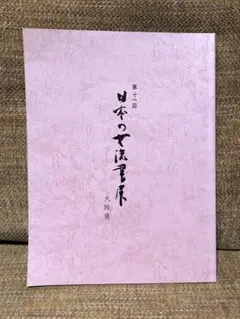 第十一回
日本の女流書展
大阪展